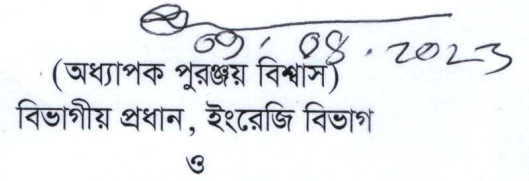 09.08.2023
(অধ্যাপক পুরঞ্জয় বিশ্বাস)
বিভাগীয় প্রধান, ইংরেজি বিভাগ
ও